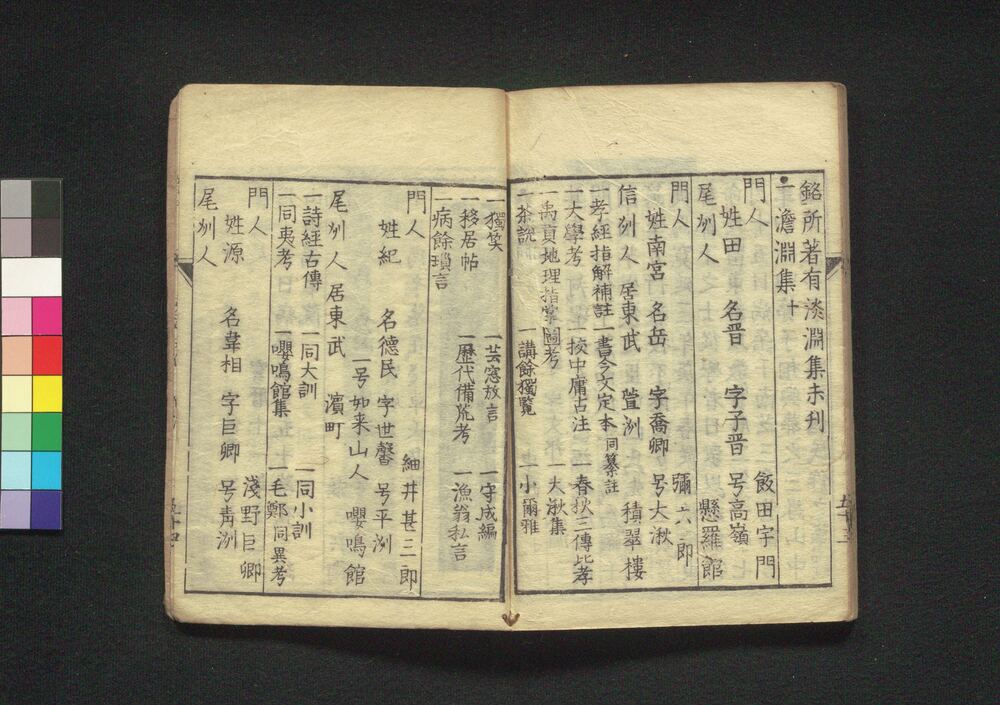 銘所著有淡淵集未刋
一澹淵集 十
門人 飯田宇門
姓田 名晋 字子晋 号高嶺
尾刕人 懸羅館
門人 彌六郎
姓南宮 名岳 字喬卿 号大湫
信刕人 居東武 萱洲 積翠樓
一孝經指解補註 一書今文定本 同纂註
一大學考 一挍中庸古注 一春秋三傳比考
一禹貢地理指掌圖考 一大湫集
一茶說 一講餘獨覧 一小爾雅
一獨笑 一芸窓放言 一守成編
一移居帖 一歷代備荒考 一漁翁私言
一病餘瑣言
門人 細井甚三郎
姓紀 名德民 字世馨 号平洲
一号如来山人 嚶鳴館
尾刕人 居東武 濱町
一詩經古傳 一同大訓 一同小訓
一同夷考 一嚶鳴館集 一毛鄭同異考
門人 淺野巨卿
姓源 名韋相 字巨卿 号青洲
尾刕人